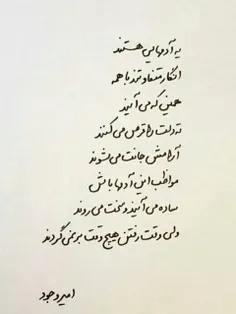 یه آدمهایی هستند
انگار متفاوتند با همه
همینی که می آیند
ته دلت را قرص می کنند
آرامش جانت می شوند
مواظب این آدمها باش
ساده می آیند و سخت می روند
ولی وقت رفتن هیچ وقت برنمی گردند
امیر وجود